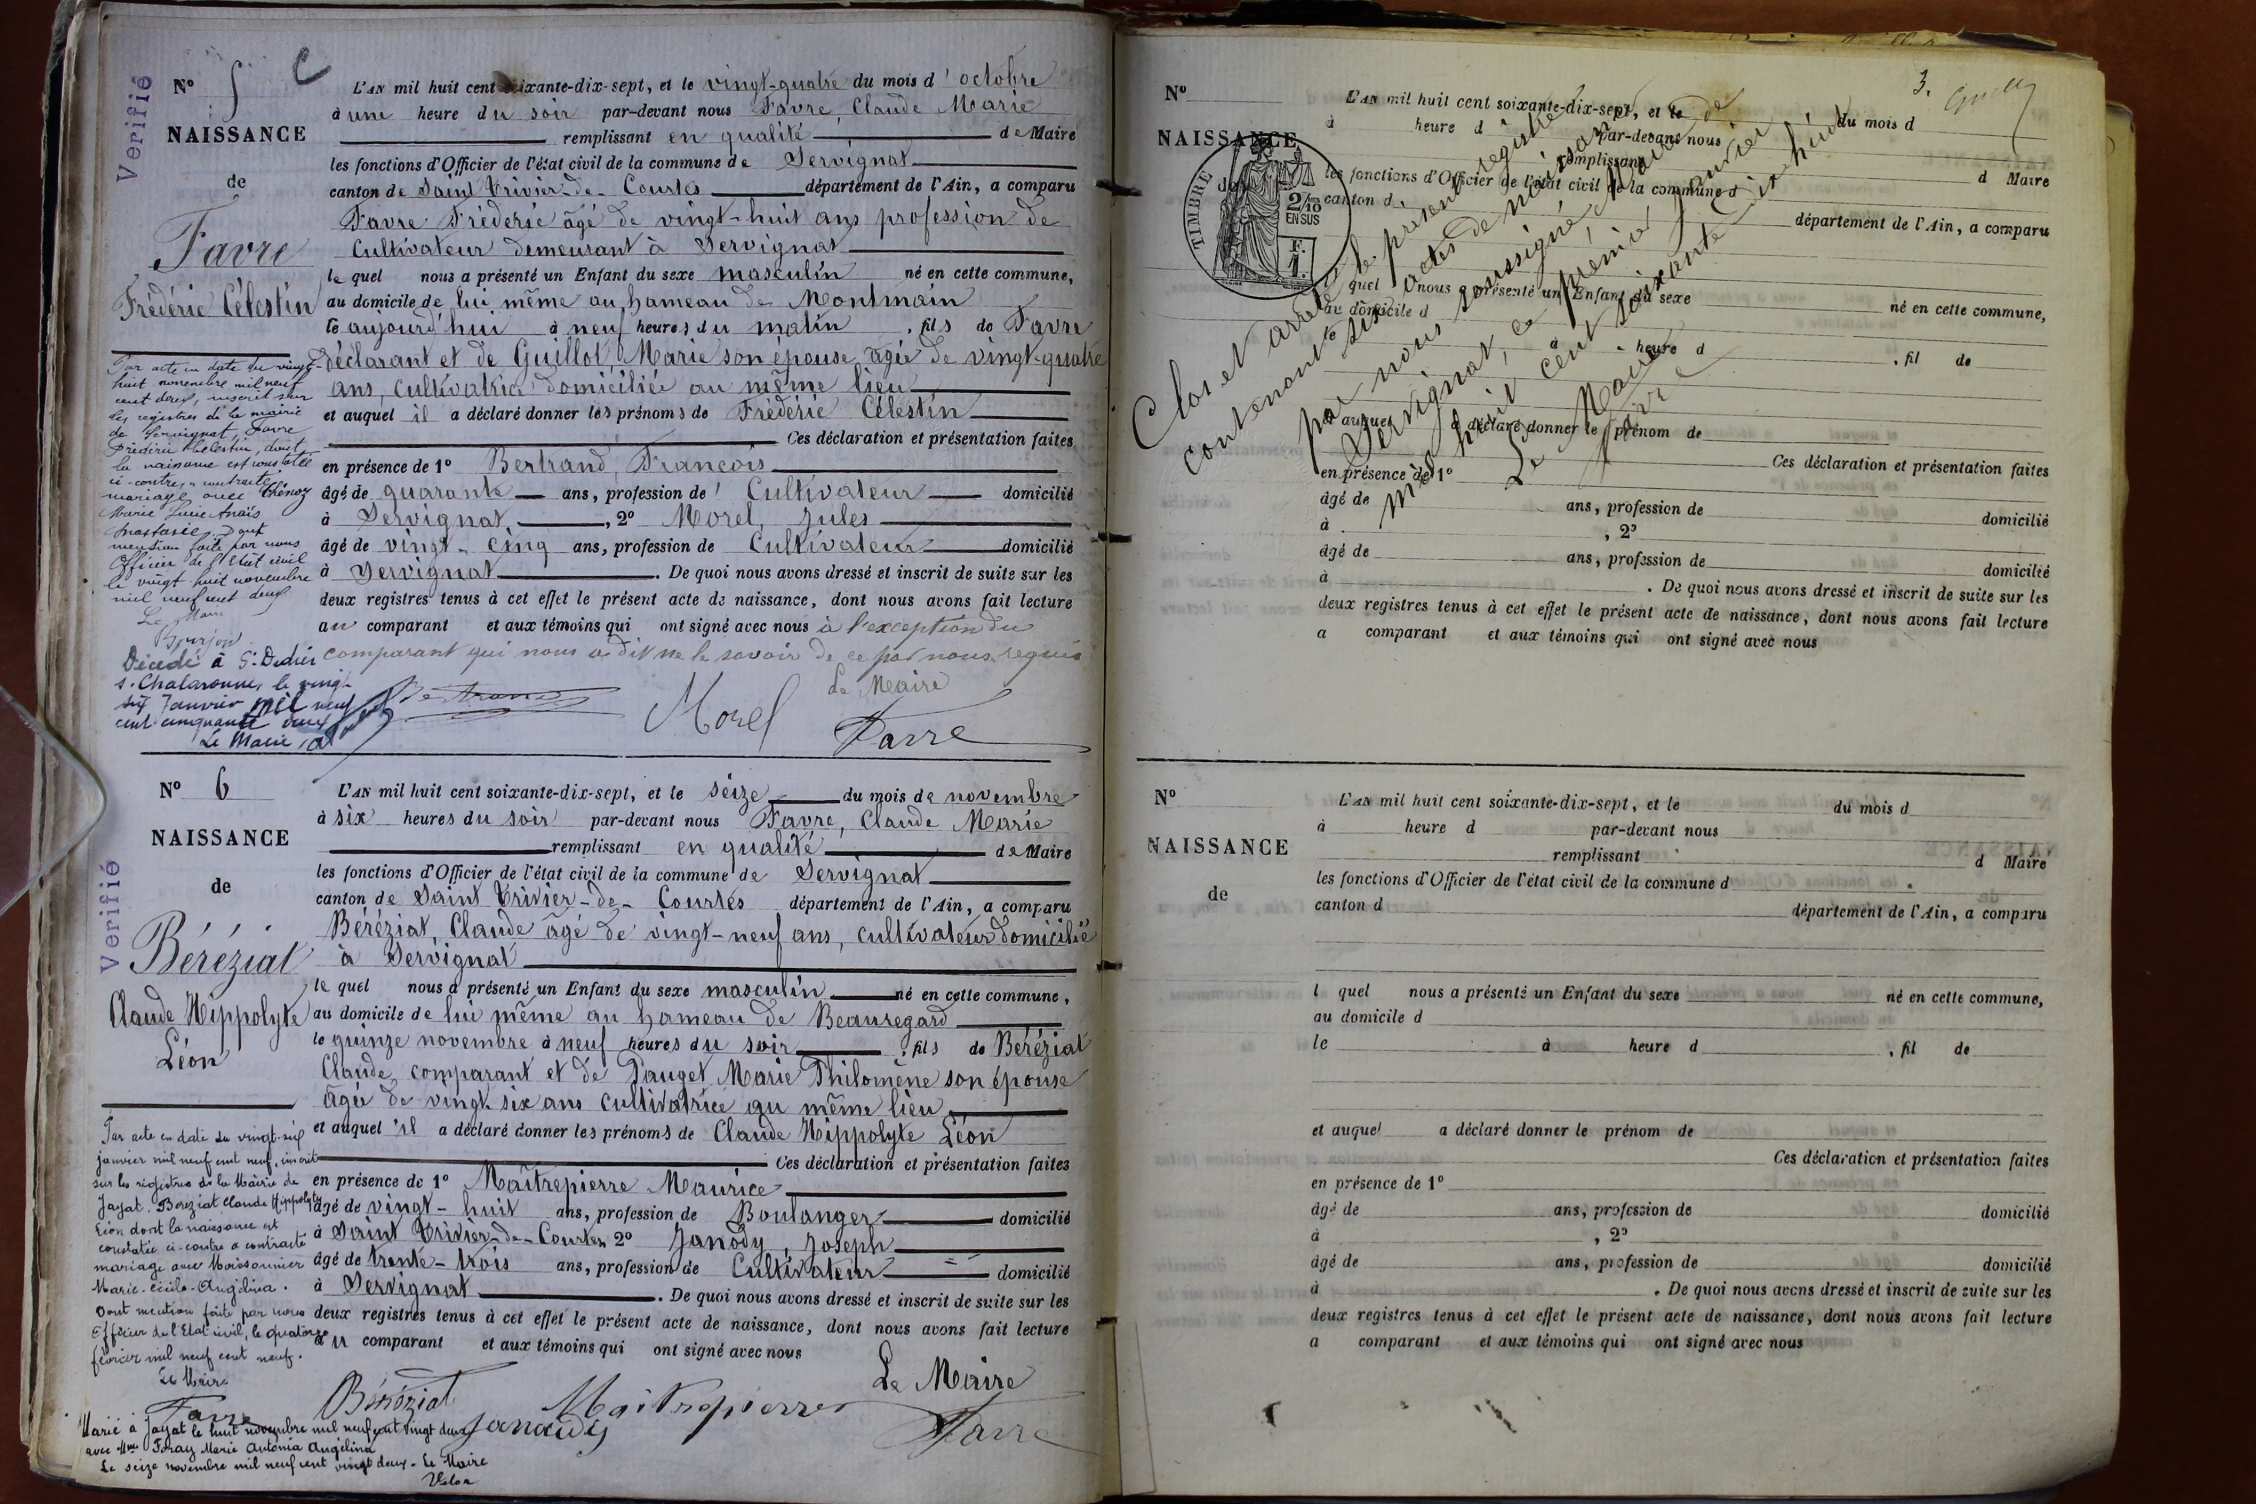 Verifié
Nº 5
NAISSANCE
de
Favre
Frédéric Célestin
L'AN mil huit cent soixante-dix-sept, et le vingt-quatre du mois d'octobre
à une heure du soir par-devant nous Favre, Claude Marie
remplissant en qualité de Maire
les fonctions d'Officier de l'état civil de la commune de Servignat
canton de Saint Trivier-de-Courtes département de l'Ain, a comparu
Favre Fréderic âgé de vingt-huit ans profession de
Cultivateur demeurant à Servignat
le quel nous a présenté un Enfant du sexe masculin né en cette commune,
au domicile de lui même au hameau de Montmain
le aujourd'hui à neuf heures du matin, fils de Favre
déclarant et de Guillot Marie son épouse âgée de vingt-quatre
ans, cultivatrice domiciliée au même lieu
et auquel il a déclaré donner les prénoms de Frédéric Célestin
Ces déclaration et présentation faites
en présence de 1º Bertrand François
âgé de quarante ans, profession de Cultivateur domicilié
à Servignat, 2º Morel, Jules
âgé de vingt-cinq ans, profession de Cultivateur domicilié
à Servignat. De quoi nous avons dressé et inscrit de suite sur les
deux registres tenus à cet effet le présent acte de naissance, dont nous avons fait lecture
au comparant et aux témoins qui ont signé avec nous à l'exception du
comparant qui nous a dit ne le savoir de ce par nous requis
Le Maire
Bertrand Morel Favre
Par acte en date du vingt-
huit novembre mil neuf
cent deux, inscrit sur
les registres de la mairie
de Servignat, Favre
Frédéric Célestin, dont
la naissance est constatée
ci-contre, a contracté
mariage avec Thénoz
Marie Lucie Anaïs
Anastasie. Dont
mention faite par nous
Officier de l'Etat civil
le vingt-huit novembre
mil neuf cent deux
Le Maire
Décédé à St Didier
s. Chalaronne, le vingt
six Janvier mil neuf
cent cinquante deux
Le Maire
Verifié
Nº 6
NAISSANCE
de
Béréziat
Claude Hippolyte
Léon
L'AN mil huit cent soixante-dix-sept, et le seize du mois de novembre
à six heures du soir par-devant nous Favre, Claude Marie
remplissant en qualité de Maire
les fonctions d'Officier de l'état civil de la commune de Servignat
canton de Saint Trivier-de-Courtes département de l'Ain, a comparu
Béréziat, Claude âgé de vingt-neuf ans, cultivateur domicilié
à Servignat
le quel nous a présenté un Enfant du sexe masculin né en cette commune,
au domicile de lui même au hameau de Beauregard
le quinze novembre à neuf heures du soir, fils de Béréziat
Claude, comparant et de Pauget Marie Philomène son épouse
âgée de vingt-six ans cultivatrice au même lieu
et auquel il a déclaré donner les prénoms de Claude Hippolyte Léon
Ces déclaration et présentation faites
en présence de 1º Maîtrepierre Maurice
âgé de vingt-huit ans, profession de Boulanger domicilié
à Saint Trivier-de-Courtes 2º Janody, Joseph
âgé de trente-trois ans, profession de Cultivateur domicilié
à Servignat. De quoi nous avons dressé et inscrit de suite sur les
deux registres tenus à cet effet le présent acte de naissance, dont nous avons fait lecture
au comparant et aux témoins qui ont signé avec nous
Le Maire
Béréziat Maitrepierre
Janody Favre
Par acte en date du vingt-six
janvier mil neuf cent neuf, inscrit
sur les registres de la Mairie de
Jayat. Bereziat Claude Hippolyte
Léon dont la naissance est
constatée ci-contre a contracté
mariage avec Moissonnier
Marie-Cécile-Angélina.
Dont mention faite par nous
Officier de l'Etat civil, le quatorze
février mil neuf cent neuf.
Le Maire
Favre
Marié à Jayat le huit novembre mil neuf cent vingt deux
avec Feray Marie Antonia Angélina
Le seize novembre mil neuf cent vingt deux - Le Maire
3.
Nº
NAISSANCE
de
TIMBRE
2/10
EN SUS
F.
1.
L'AN mil huit cent soixante-dix-sept, et le du mois d
à heure d par-devant nous
remplissant d Maire
les fonctions d'Officier de l'état civil de la commune d
canton d département de l'Ain, a comparu
l quel nous a présenté un Enfant du sexe né en cette commune,
au domicile d
le à heure d, fil de
et auquel a déclaré donner le prénom de
Ces déclaration et présentation faites
en présence de 1º
âgé de ans, profession de domicilié
à, 2º
âgé de ans, profession de domicilié
à. De quoi nous avons dressé et inscrit de suite sur les
deux registres tenus à cet effet le présent acte de naissance, dont nous avons fait lecture
a comparant et aux témoins qui ont signé avec nous
Clos et arrêté le présent registre
contenant six actes de naissance
par nous soussigné, Maire de
Servignat, ce premier janvier
mil huit cent soixante dix huit
Le Maire
Favre
Nº
NAISSANCE
de
L'AN mil huit cent soixante-dix-sept, et le du mois d
à heure d par-devant nous
remplissant d Maire
les fonctions d'Officier de l'état civil de la commune d
canton d département de l'Ain, a comparu
l quel nous a présenté un Enfant du sexe né en cette commune,
au domicile d
le à heure d, fil de
et auquel a déclaré donner le prénom de
Ces déclaration et présentation faites
en présence de 1º
âgé de ans, profession de domicilié
à, 2º
âgé de ans, profession de domicilié
à. De quoi nous avons dressé et inscrit de suite sur les
deux registres tenus à cet effet le présent acte de naissance, dont nous avons fait lecture
a comparant et aux témoins qui ont signé avec nous